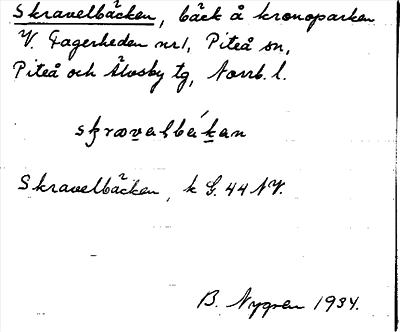 Skravelbäcken, bäck å kronoparken
V. Fagerheden nr 1, Piteå sn,
Piteå och Älvsby tg, Norrb. l.
skravalbäkan
Skravelbäcken, k G. 44 NV.
B. Nygren 1934.